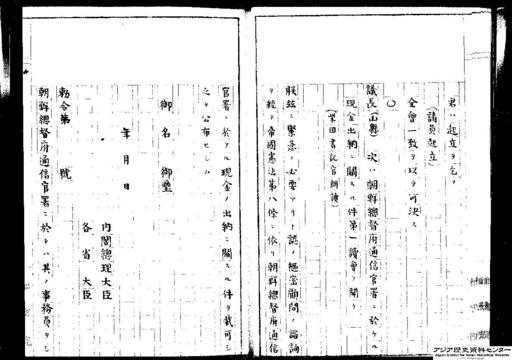 君ハ起立ヲ乞フ
(議員起立)
全會一致ヲ以テ可決ス
〇
議長(山縣) 次ハ朝鮮總督府通信官署ニ於ケル
現金出納ニ關スル件第一讀會ヲ開ク
(柴田書記官朗讀)
朕玆ニ緊急ノ必要アリト認メ樞密顧問ノ諮詢
ヲ經テ帝國憲法第八條ニ依リ朝鮮總督府通信
官署ニ於ケル現金ノ出納ニ關スル件ヲ裁可シ
之ヲ公布セシム
御名 御璽
年 月 日
內閣總理大臣
各省大臣
勅令第 號
朝鮮總督府通信官署ニ於テハ其ノ事務員ヲシ
アジア歴史資料センター
Japan Center for Asian Historical Records